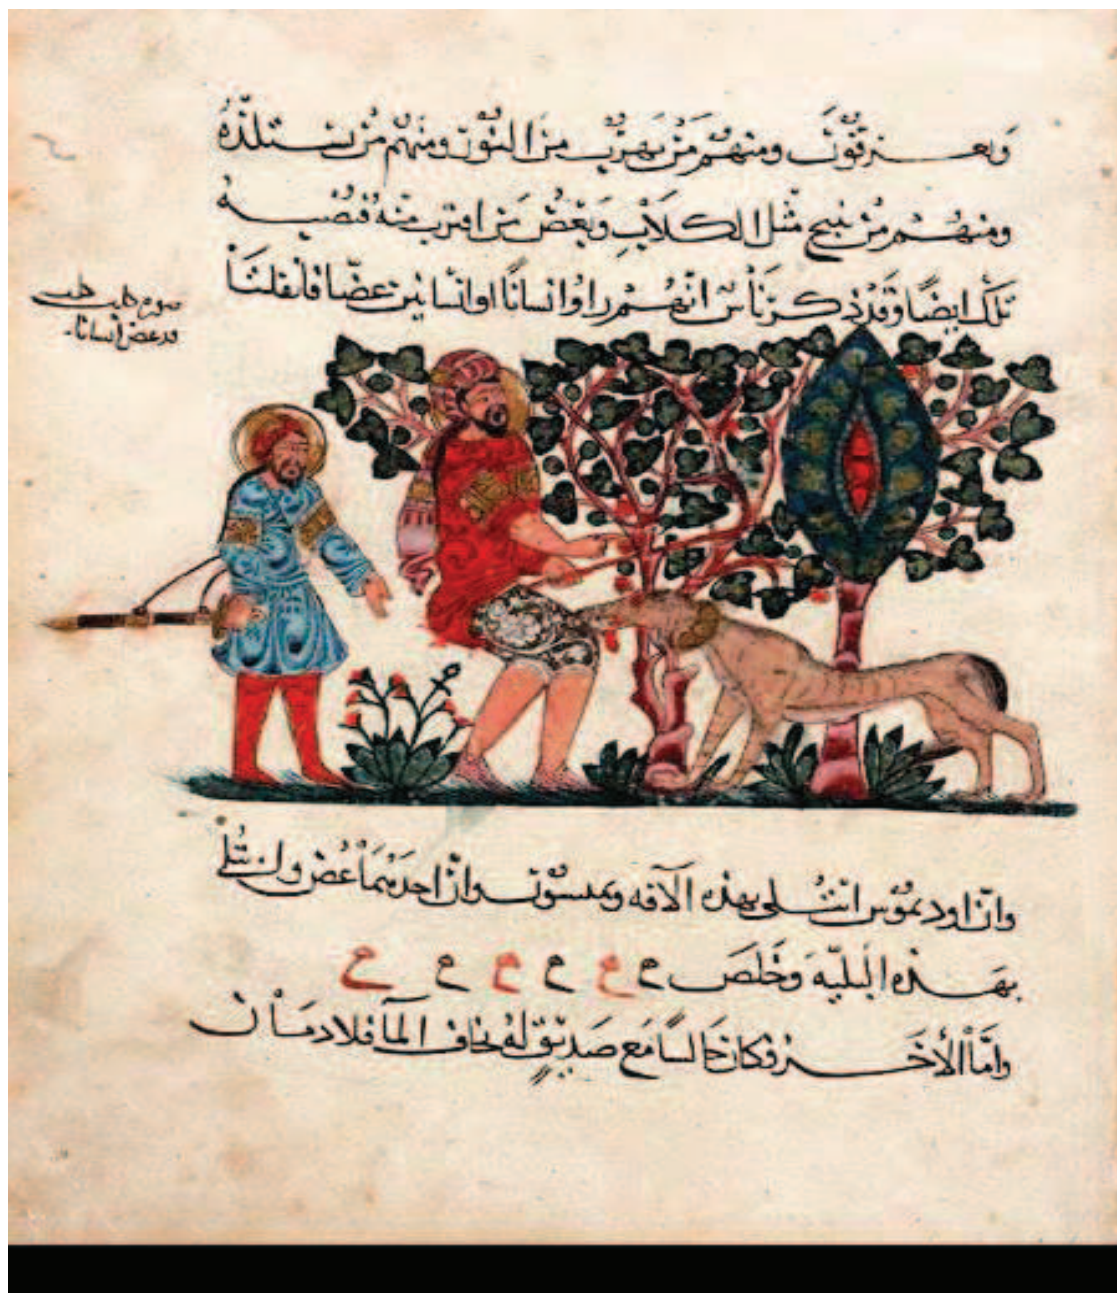 ويعـرقون ومنهم مَن يهرب من النور ومنهم من يستلذه
ومنهم من ينبح مثل الكلاب ويعض من اقترب منه فتصيبه
تلك ايضًا وقد ذكر ناس انهم راوا انسانًا او انسانين عضّا فانفلتا
صورة كلب كلب
قد عض انسانا
وان اوديموس ابتلى بهذه الآفة وتمسون وان احدهما عض وابتلى
بهذه البليّه وخلص
وامّا الأخر فكان جالسًا مع صديق له يخاف المآ فلا دمان